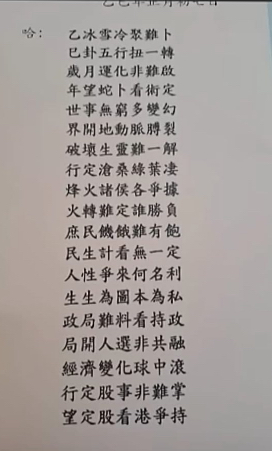 乙巳年正月初七日
哈：
乙冰雪冷聚難卜
巳卦五行扭一轉
歲月運化非難啟
年望蛇卜看術定
世事無窮多變幻
界開地動脈膊裂
破壞生靈難一解
行定滄桑綠葉凄
烽火諸侯各爭據
火轉難定誰勝負
庶民饑餓難有飽
民生計看無一定
人性爭來何名利
生生為圖本為私
政局難料看持政
局開人選非共融
經濟變化球中滾
行定股事非難掌
望定股看港爭持